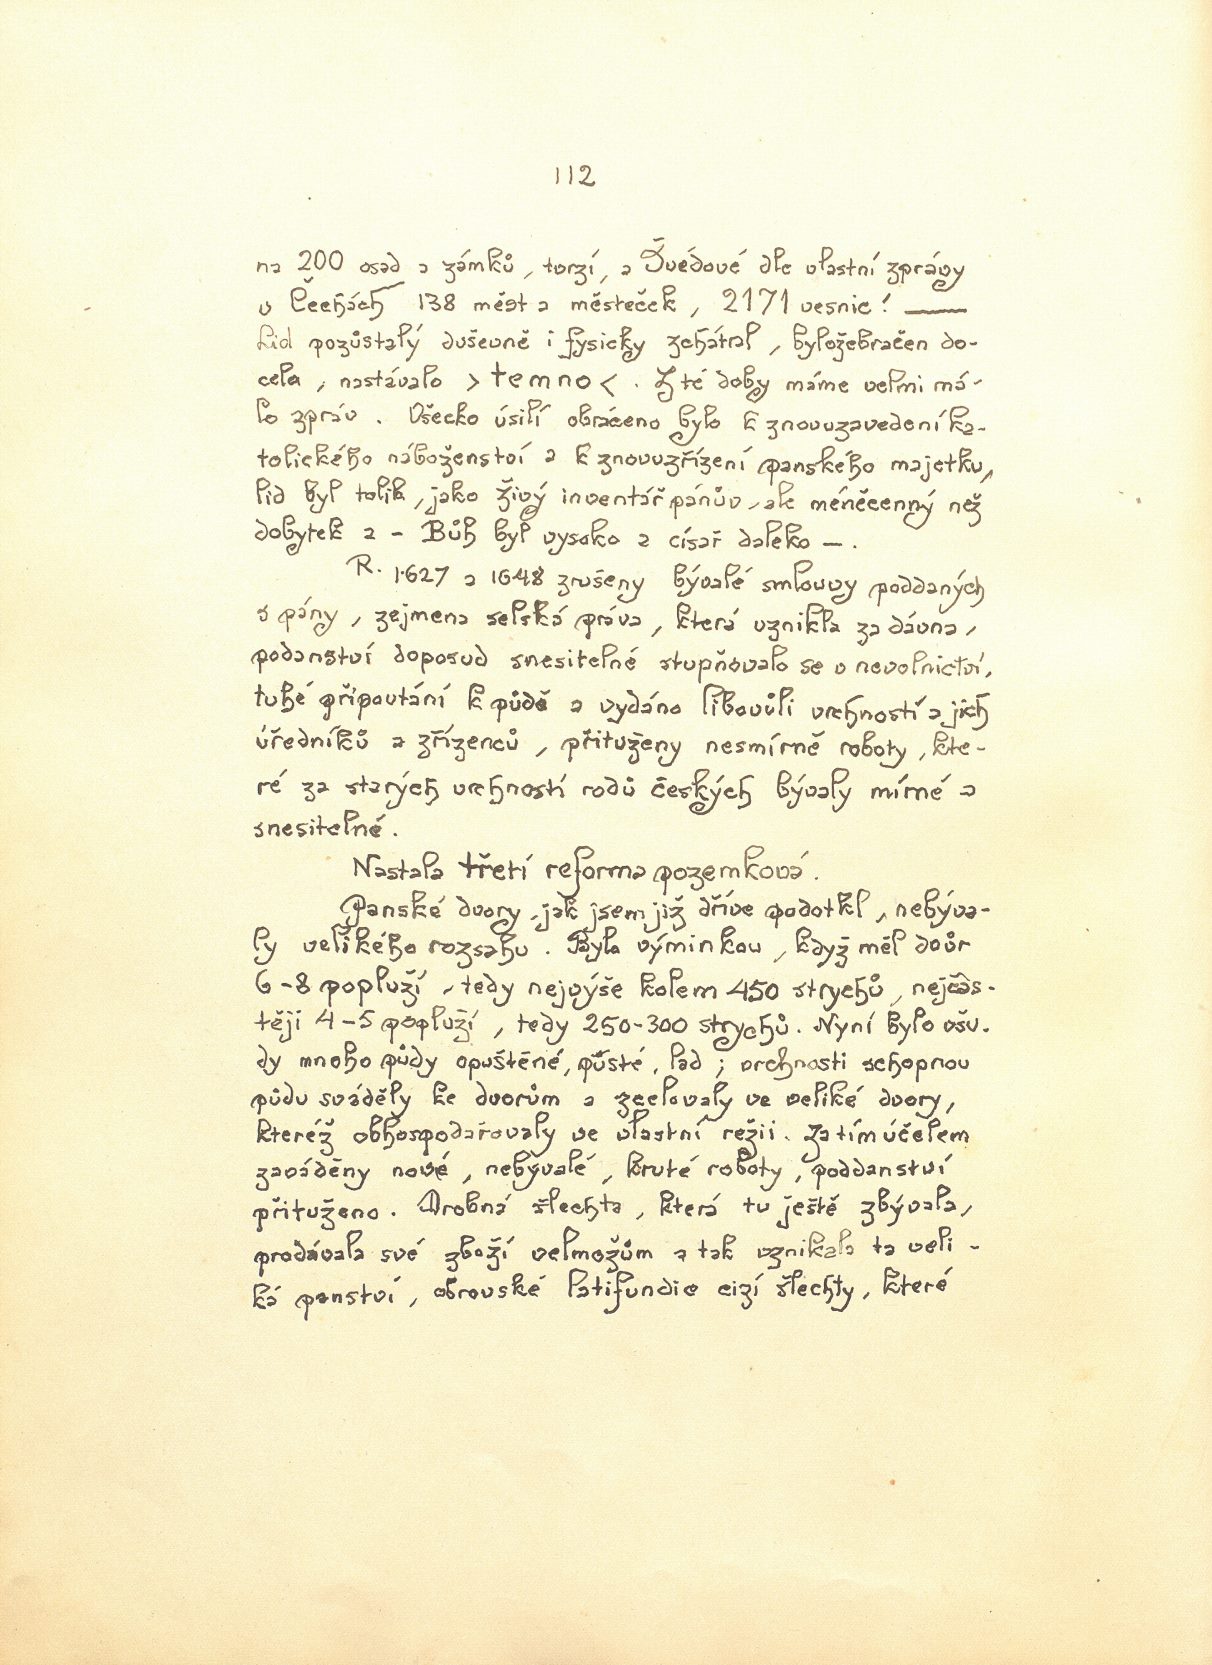 112
na 200 osad a zámků, tvrzí, a Švédové dle vlastní zprávy
v Čechách 138 měst a městeček, 2171 vesnic! —
Lid pozůstalý duševně i fysicky zchátral, byl ožebračen do-
cela, nastávalo >temno<. Z té doby máme velmi má-
lo zpráv. Všecko úsilí obráceno bylo k znovuzavedení ka-
tolického náboženství a k znovuzřízení panského majetku,
lid byl tolik, jako živý inventář pánův, ale méněcenný než
dobytek a - Bůh byl vysoko a císař daleko —.
R. 1627 a 1648 zrušeny bývalé smlouvy poddaných
s pány, zejmena selská práva, která vznikla za dávna,
podanství doposud snesitelné stupňovalo se v nevolnictví,
tuhé připoutání k půdě a vydáno libovůli vrchností a jich
úředníků a zřízenců, přituženy nesmírně roboty, kte-
ré za starých vrchností rodů českých bývaly mírné a
snesitelné.
Nastala třetí reforma pozemková.
Panské dvory, jak jsem již dříve podotkl, nebýva-
ly velikého rozsahu. Byla výminkou, když měl dvůr
6-8 popluží, tedy nejvýše kolem 450 strychů, nejčas-
těji 4-5 popluží, tedy 250-300 strychů. Nyní bylo ošu-
dy mnoho půdy opuštěné, půsté, lad; vrchnosti schopnou
půdu sváděly ke dvorům a zcelovaly ve veliké dvory,
kteréž obhospodařovaly ve vlastní režii. Za tím účelem
zaváděny nové, nebývalé, kruté roboty, poddanství
přituženo. Drobná šlechta, která tu ještě zbývala,
prodávala své zboží velmožům a tak vznikala ta veli-
ká panství, obrovské latifundie cizí šlechty, které